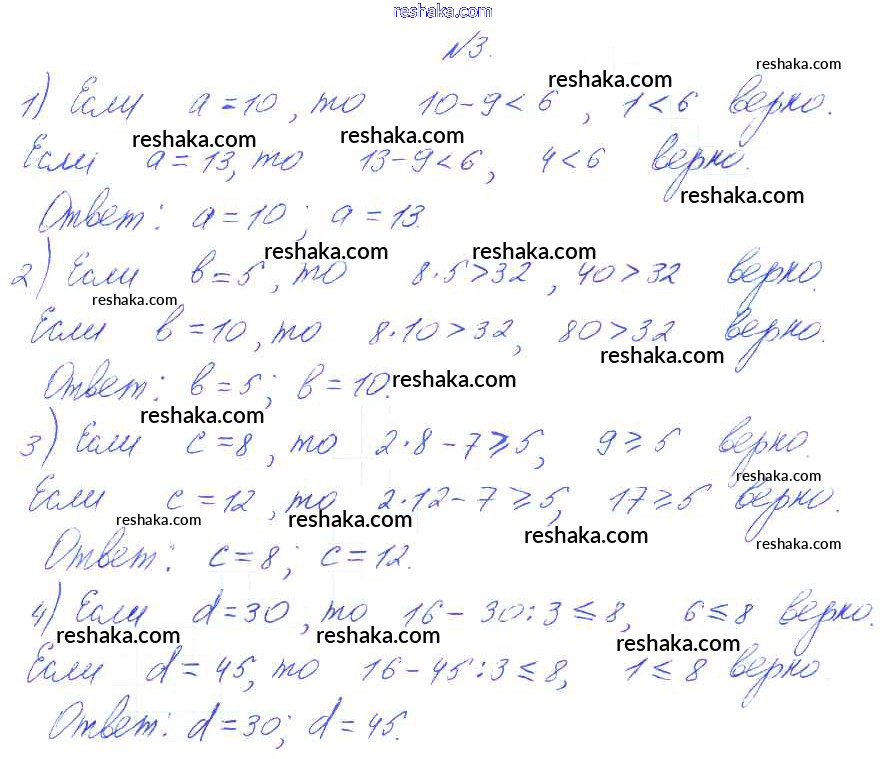 reshaka.com
№3.
reshaka.com
reshaka.com
1) Если a=10, то 10-9<6, 1<6 верно.
reshaka.com
reshaka.com reshaka.com
Если a=13, то 13-9<6, 4<6 верно.
reshaka.com
Ответ: a=10; a=13.
reshaka.com reshaka.com
2) Если в=5, то 8·5>32, 40>32 верно.
reshaka.com
Если в=10, то 8·10>32, 80>32 верно.
reshaka.com
Ответ: в=5; в=10.
reshaka.com
reshaka.com
3) Если c=8, то 2·8-7⩾5, 9⩾5 верно.
reshaka.com
Если c=12, то 2·12-7⩾5, 17⩾5 верно.
reshaka.com reshaka.com
reshaka.com
reshaka.com
Ответ: c=8; c=12.
4) Если d=30, то 16-30:3⩽8, 6⩽8 верно.
reshaka.com reshaka.com
reshaka.com
Если d=45, то 16-45:3⩽8, 1⩽8 верно.
Ответ: d=30; d=45.
reshaka.com reshaka.com
reshaka.com